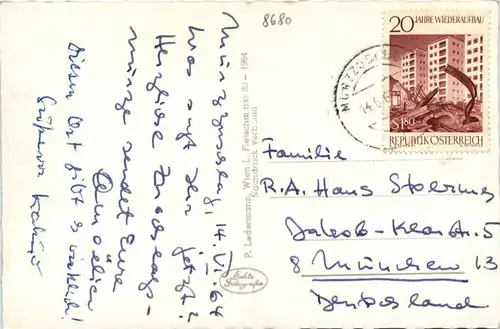 8680
20 JAHRE WIEDERAUFBAU
S1.80
REPUBLIK ÖSTERREICH
MÜRZZUSCHLAG
14.6.6
Mürzzuschlag, 14. VI. 64
Was sagt Ihr jetzt?
Herzliche Zuschlags-
münze sendet Eure
Diesen Ort gibt es wirklich!
Grüße von
P. Ledermann, Wien I, Fleischmarkt 20 - 1964
Nachdruck verboten
Echte
Fotografie
Familie
R.A. Hans
Jakob-Klar-Str. 5
8 München 13
Deutschland